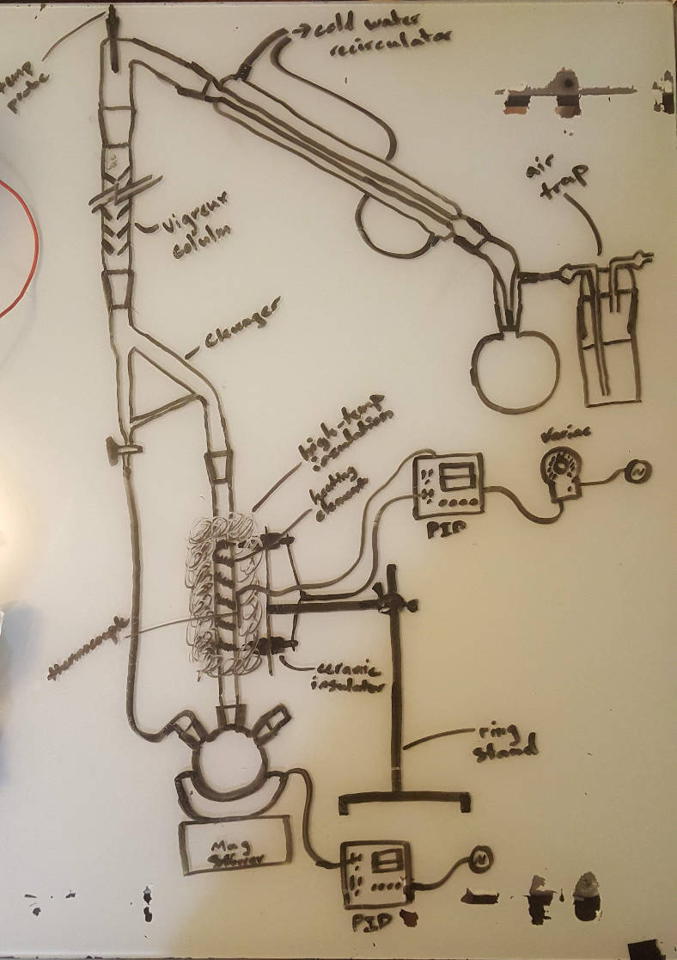 temp
probe
→cold water
recirculator
air
trap
vigreux
column
Clevenger
high-temp
insulation
heating
element
Variac
PID
thermocouple
ceramic
insulator
ring
stand
Mag
Stirrer
PID